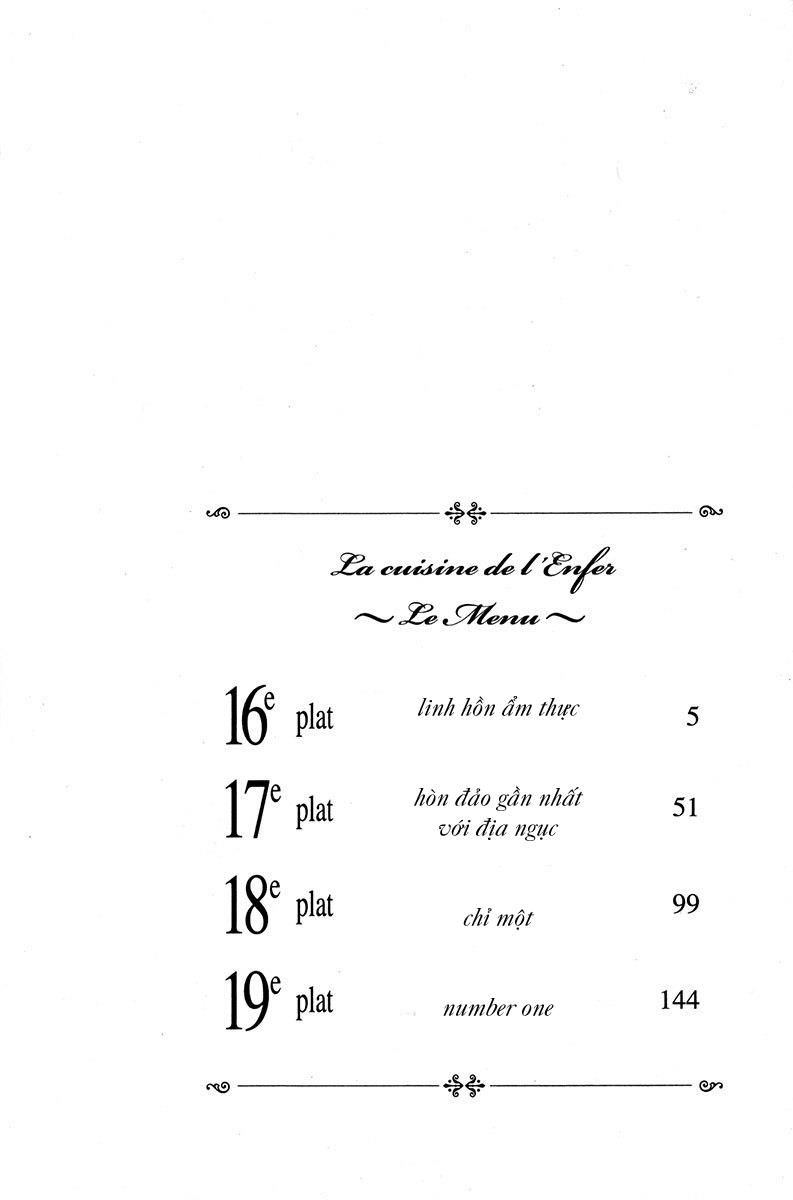 La cuisine de l'Enfer
~ Le Menu ~
16e plat linh hồn ẩm thực 5
17e plat hòn đảo gần nhất
với địa ngục 51
18e plat chỉ một 99
19e plat number one 144